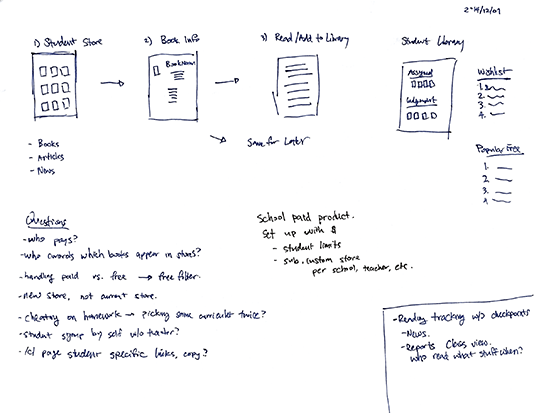 1) Student Store
2) Book Info
3) Read/Add to Library
Student Library
Book Name
Assigned
Judgment
Wishlist
1.
2.
3.
4.
Save for Later
- Books
- Articles
- News
Popular Free
1.
2.
3.
4.
Questions
- who pays?
- who controls which books appear in stores?
- handling paid vs. free → free filter.
- new store, not current store.
- cheating on homework → picking same curriculet twice?
- student signup by self w/o teacher?
- page student specific links, copy?
School paid product.
Set up with &
- student limits
- sub. custom store
per school, teacher, etc.
- Reading tracking w/o checkpoints
- News.
- Reports Class view.
who read what stuff when?